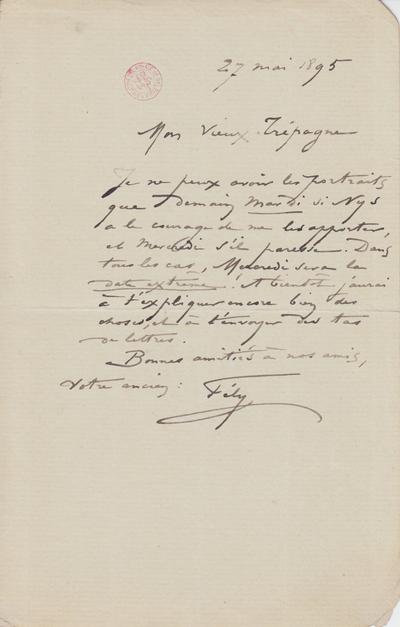 27 mai 1895
Mon Vieux Trépagne
Je ne peux avoir les portraits
que demain Mardi si Nys
a le courage de me les apporter,
et Mercredi s'il paresse. Dans
tous les cas, Mercredi sera la
date extrême ! A bientôt j'aurai
à t'expliquer encore bien des
choses, et à t'envoyer des tas
de lettres.
Bonnes amitiés à nos amis,
Votre ancien : Fély